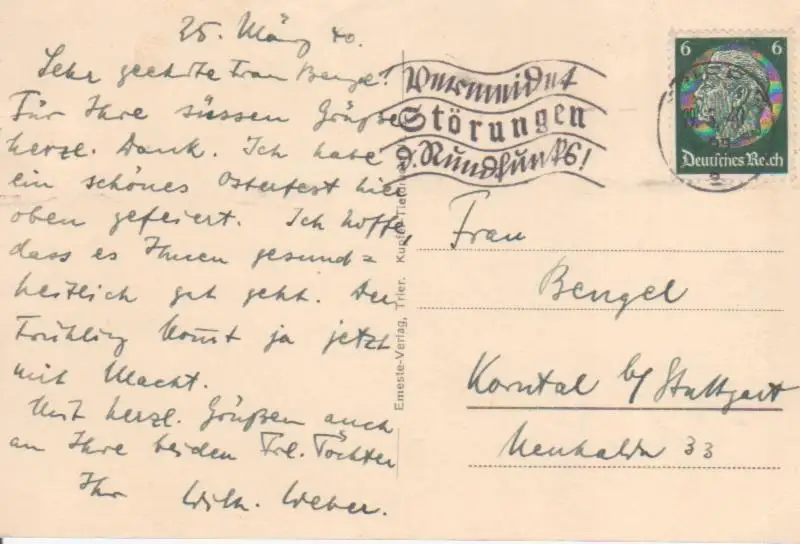 25. März 40.
Sehr geehrte Frau Bengel!
Für Ihre süssen Grüße
herzl. Dank. Ich habe
ein schönes Osterfest hier
oben gefeiert. Ich hoffe,
dass es Ihnen gesund=
heitlich gut geht. Der
Frühling kommt ja jetzt
mit Macht.
Mit herzl. Grüßen auch
an Ihre beiden Frl. Töchter
Ihr Wilh. Weber.
Emeste-Verlag, Trier. Kupfer-Tiefdruck
Vermeidet
Störungen
d. Rundfunks!
6 6
Deutsches Reich
Frau
Bengel
Korntal b/ Stuttgart
33